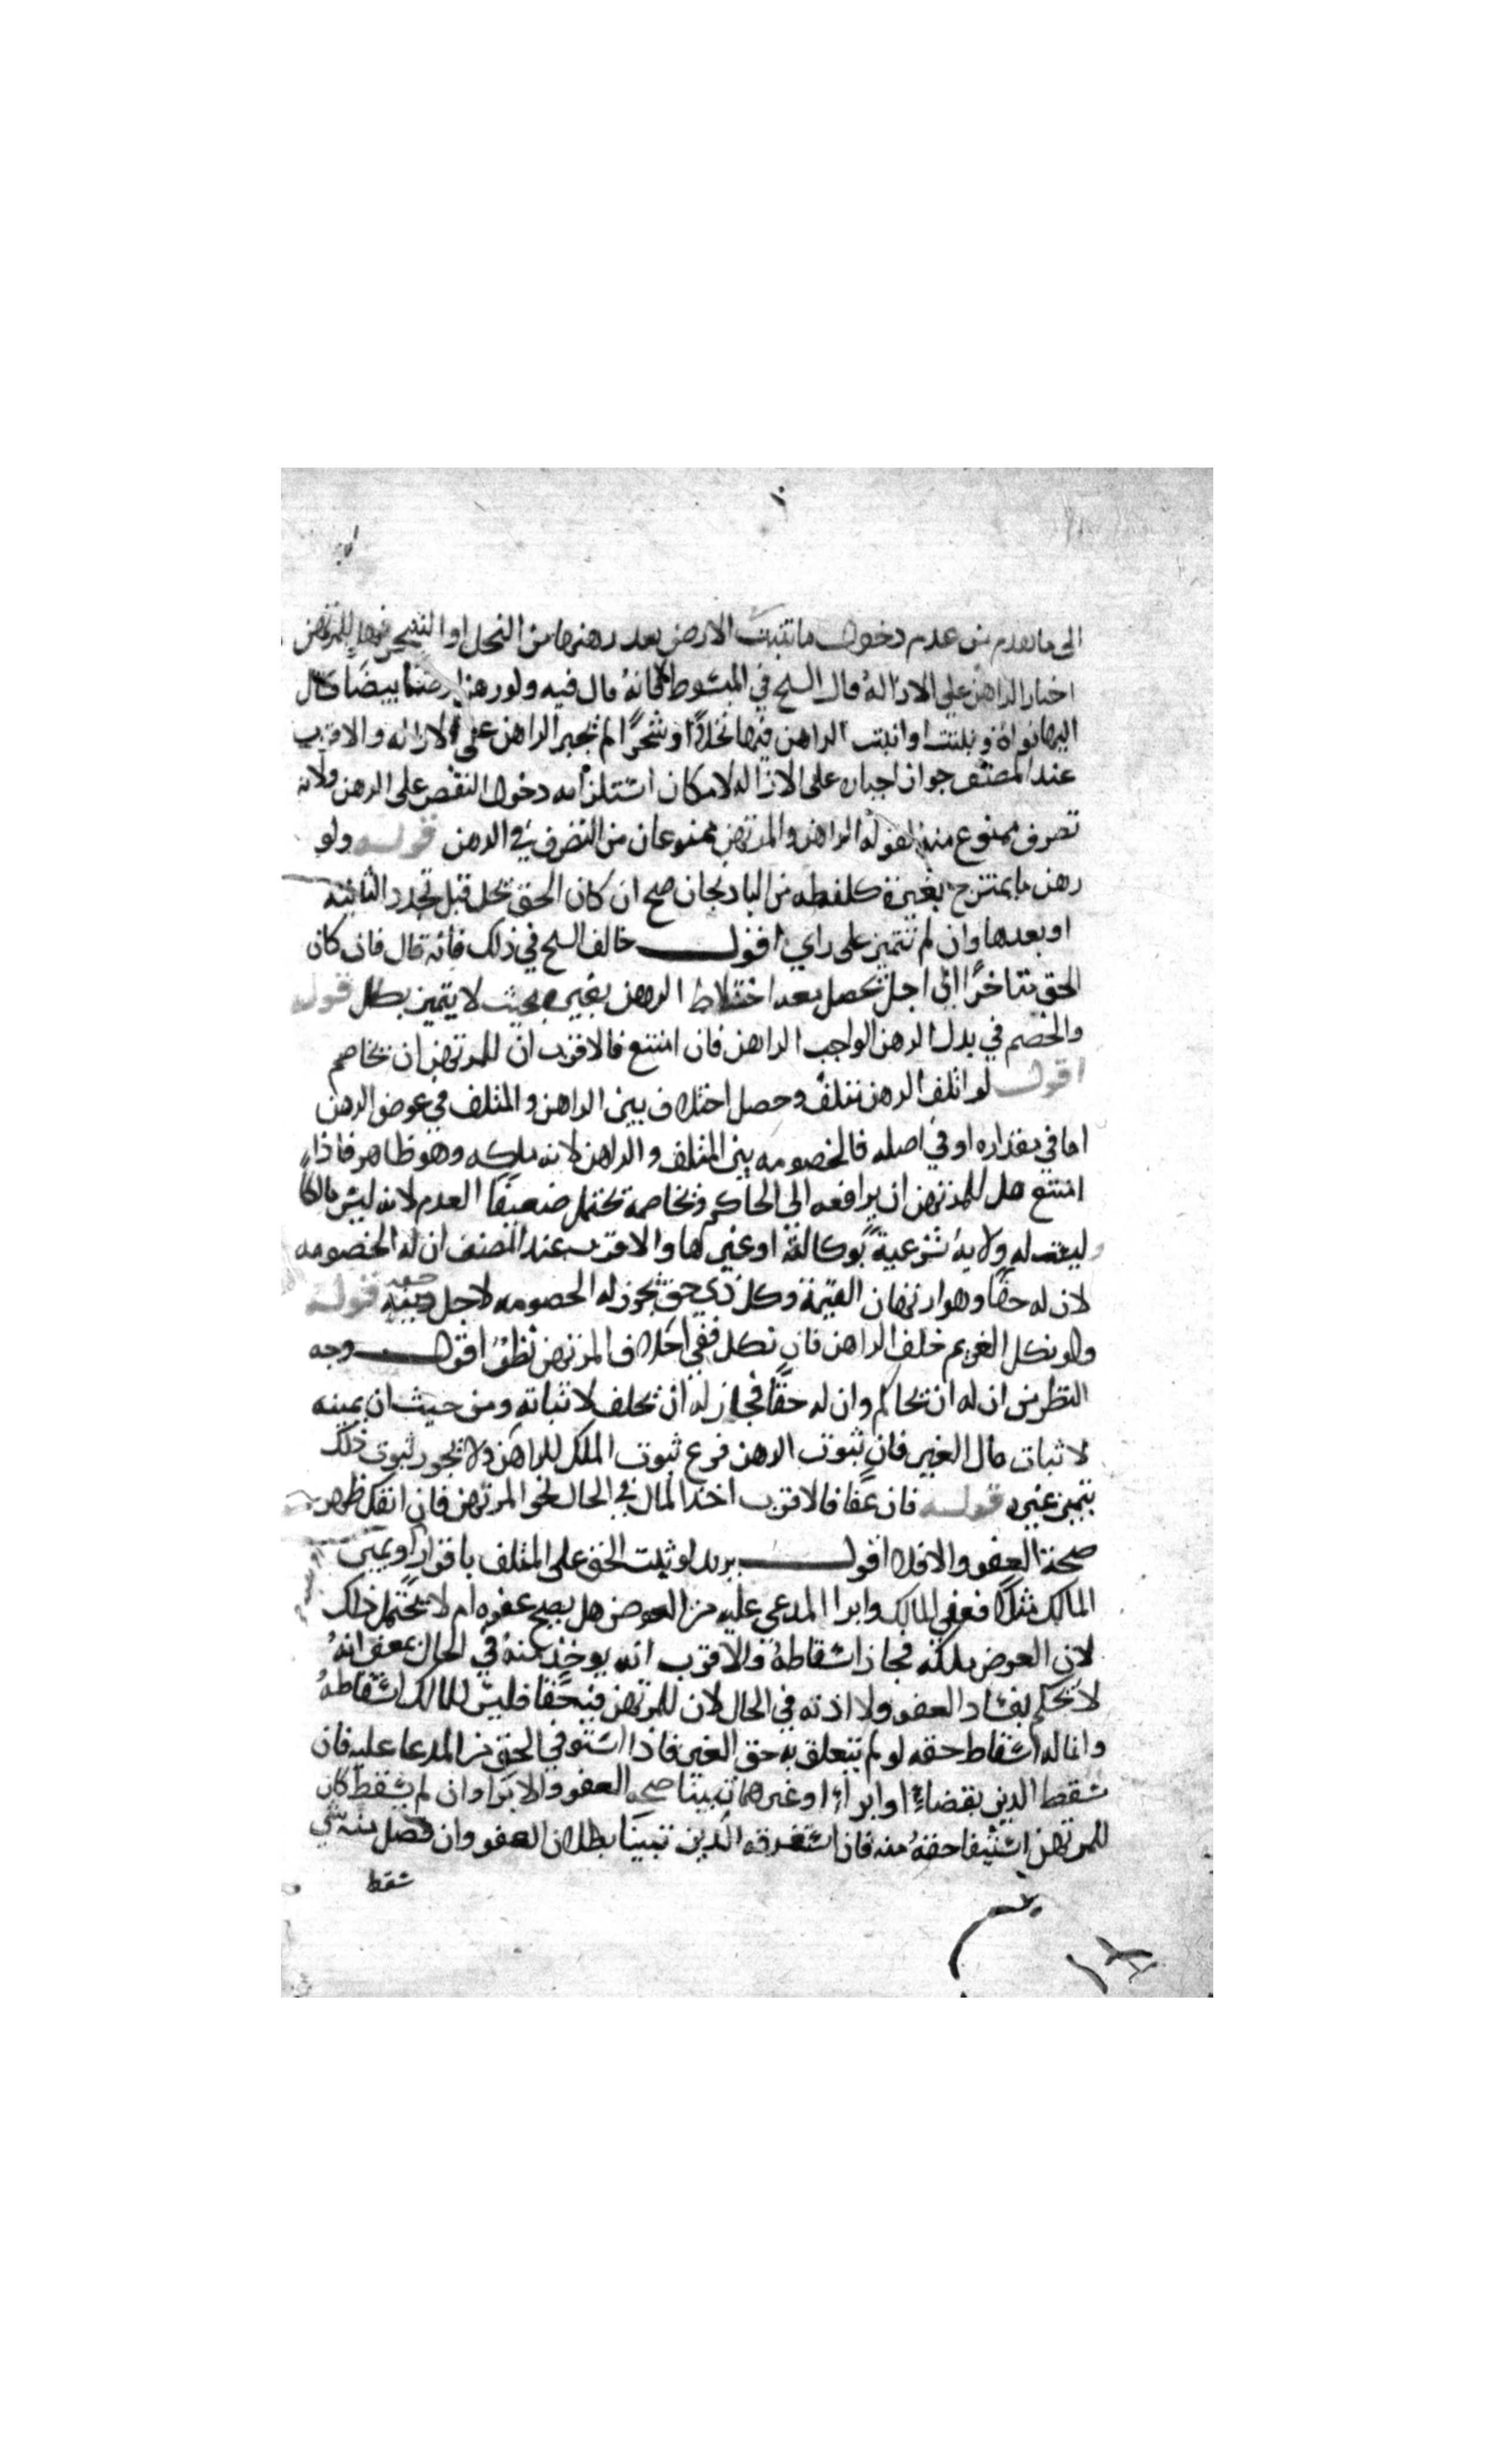 الى ما تقدم من عدم دخول ما تنبت الارض بعد رهنها من النخل او الشجر فهل للمرتهن
اجبار الراهن على الازالة قال الشيخ في المبسوط لا فانه قال فيه ولو رهن ارضا بيضا
اليها نواة ونبتت او انبت الراهن فيها نخلا او شجرا لم يجبر الراهن على الازالة والاقرب
عند المصنف جواز اجباره على الازالة لامكان استلزامه دخول النقص على الرهن ولانه
تصرف ممنوع منه لقوله الراهن والمرتهن ممنوعان من التصرف في الرهن قوله ولو
رهن ما يمتزج بغيره كلقطه من الباذنجان صح ان كان الحق يحل قبل تجدد الثانيه
او بعدها وان لم تتميز على راي اقول خالف الشيخ في ذلك فانه قال فان كان
الحق متاخرا الى اجل يحصل بعد اختلاط الرهن بغيره بحيث لا يتميز بطل قوله
والخصم في بدل الرهن الواجب الراهن فان امتنع فالاقرب ان للمرتهن ان يخاصم
اقول لو اتلف الرهن متلف وحصل اختلاف بين الراهن والمتلف في عوض الرهن
اما في مقداره او في اصله فالخصومه بين المتلف والراهن لانه ملكه وهو ظاهر فاذا
امتنع هل للمرتهن ان يرافعه الى الحاكم ويخاصمه يحتمل ضعيفا العدم لانه ليس مالكا
وليست له ولاية شرعية بوكالة او غيرها والاقرب عند المصنف ان له الخصومه
لان له حقا وهو ارتهان القيمة وكل ذي حق يجوز له الخصومه لاجل حقه قوله
ولو نكل الغريم حلف الراهن فان نكل ففي احلاف المرتهن نظر اقول وجه
النظر من ان له ان يحاكم وان له حقا فجاز له ان يحلف لاثباته ومن حيث ان يمينه
لاثبات مال الغير فان ثبوت الرهن فرع ثبوت الملك للراهن ولا يجوز ثبوت ذلك
بيمين غيره قوله فان عفا فالاقرب اخذ المال في الحال لحق المرتهن فان انفك ظهر
صحة العفو والا فلا اقول يريد لو ثبت الحق على المتلف باقرار او يمين
المالك مثلا فعفى المالك وابرا المدعى عليه من العوض هل يصح عفوه ام لا يحتمل ذلك
لان العوض ملكه فجاز اسقاطه والاقرب انه يوخذ منه في الحال بمعنى انه
لا يحكم بفساد العفو ولا في الحال لان للمرتهن فيه حقا فليس للمالك اسقاطه
وانما له اسقاط حقه لو لم يتعلق به حق الغير فاذا استوفي الحق من المدعا عليه فان
سقط الدين بقضاء او ابراء او غيرهما تبينا صحه العفو والابرا وان لم يسقط كان
للمرتهن استيفا حقه منه فان استغرقه الدين تبينا بطلان العفو وان فضل منه شي
سقط